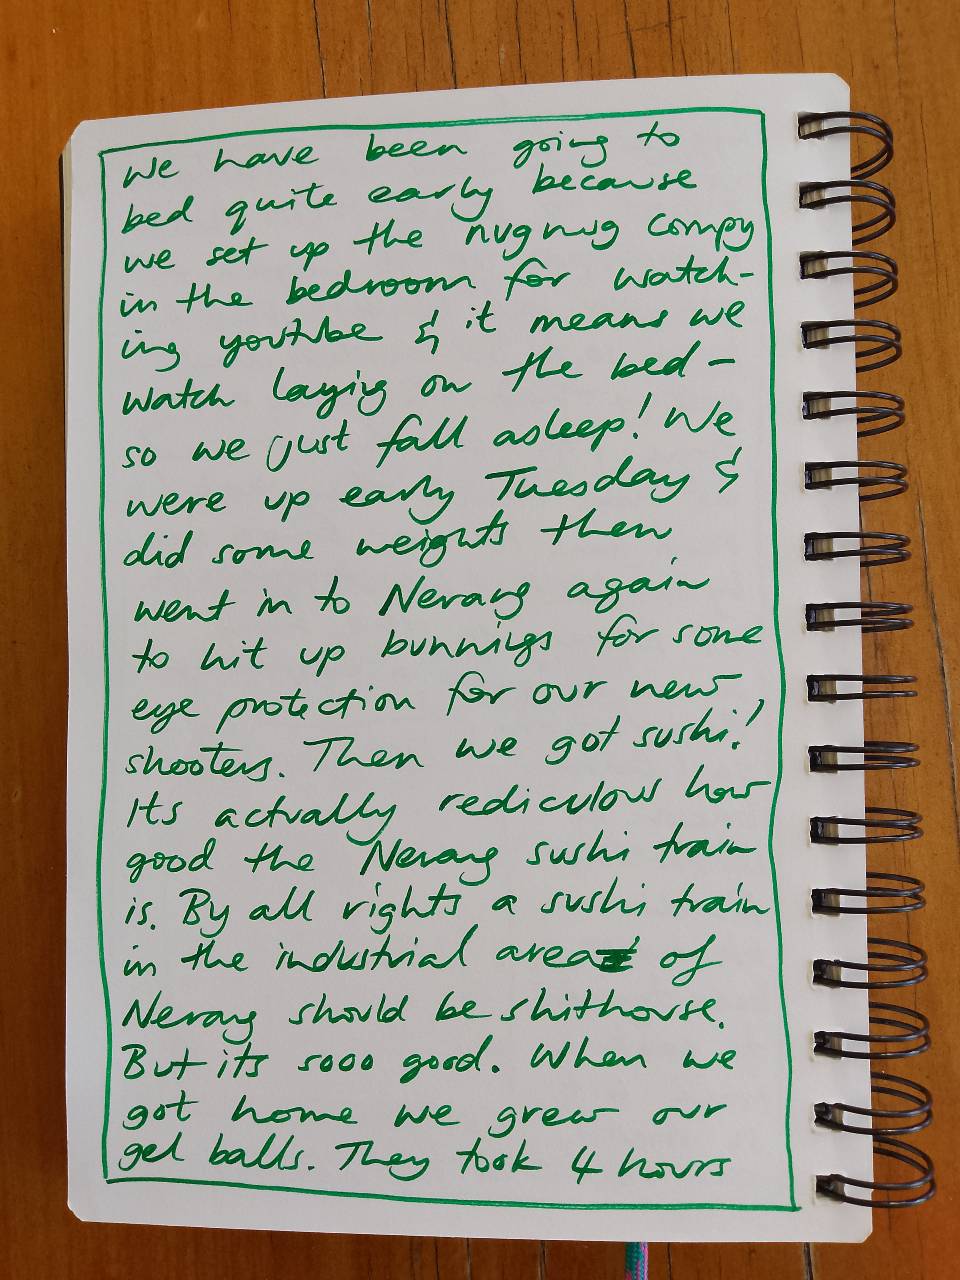 We have been going to
bed quite early because
we set up the nugnug compy
in the bedroom for watch-
ing youtube & it means we
watch laying on the bed -
so we just fall asleep! We
were up early Tuesday &
did some weights then
went in to Nerang again
to hit up bunnings for some
eye protection for our new
shooters. Then we got sushi!
Its actually rediculous how
good the Nerang sushi train
is. By all rights a sushi train
in the industrial area of
Nerang should be shithouse.
But its sooo good. When we
got home we grew our
gel balls. They took 4 hours